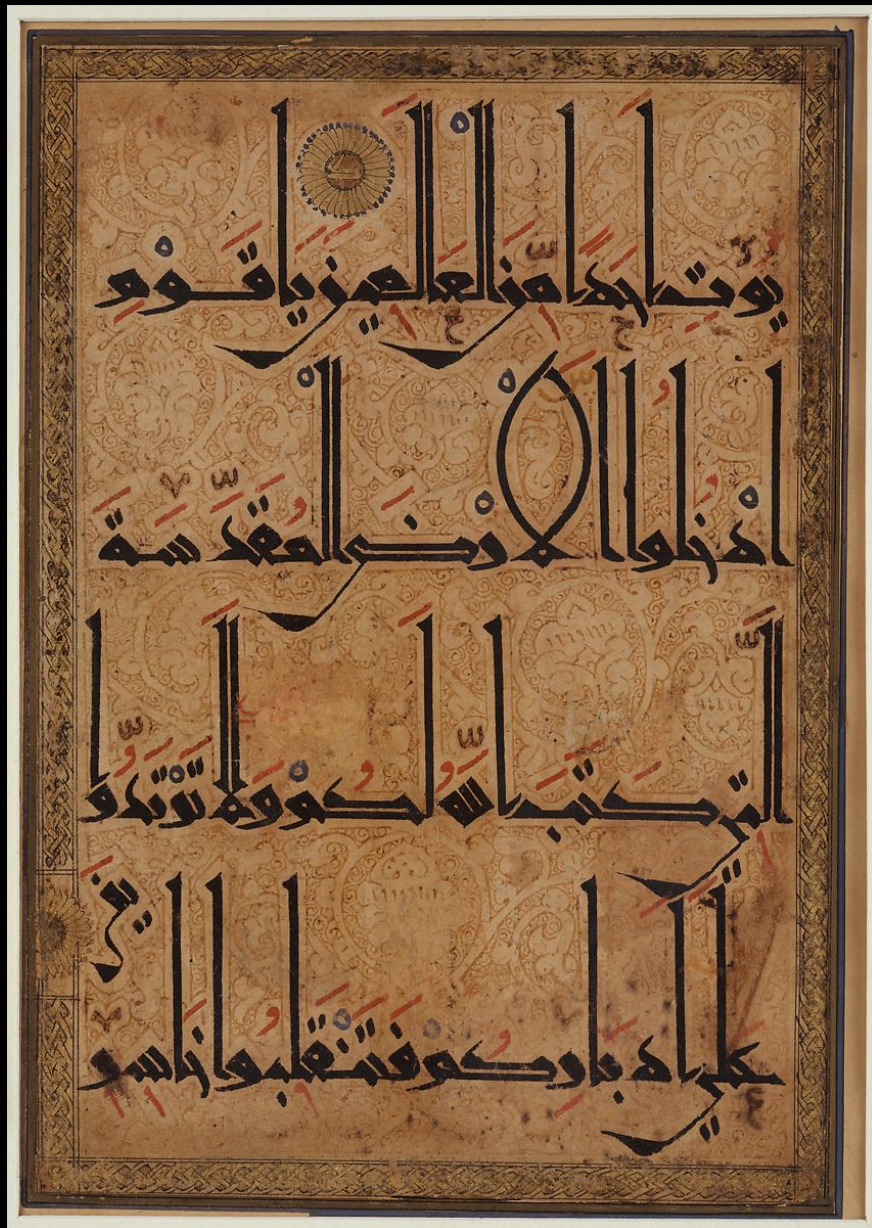 يُؤْتِ أَحَدًا مِنَ الْعَالَمِينَ يَا قَوْمِ
ادْخُلُوا الْأَرْضَ الْمُقَدَّسَةَ
الَّتِي كَتَبَ اللَّهُ لَكُمْ وَلَا تَرْتَدُّوا
عَلَى أَدْبَارِكُمْ فَتَنْقَلِبُوا خَاسِرِينَ